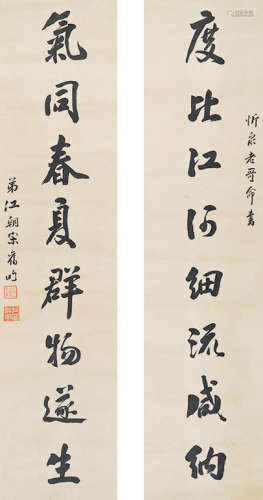 忻泉老哥命書
度比江河細流咸納
氣同春夏群物遂生
弟江朝宗